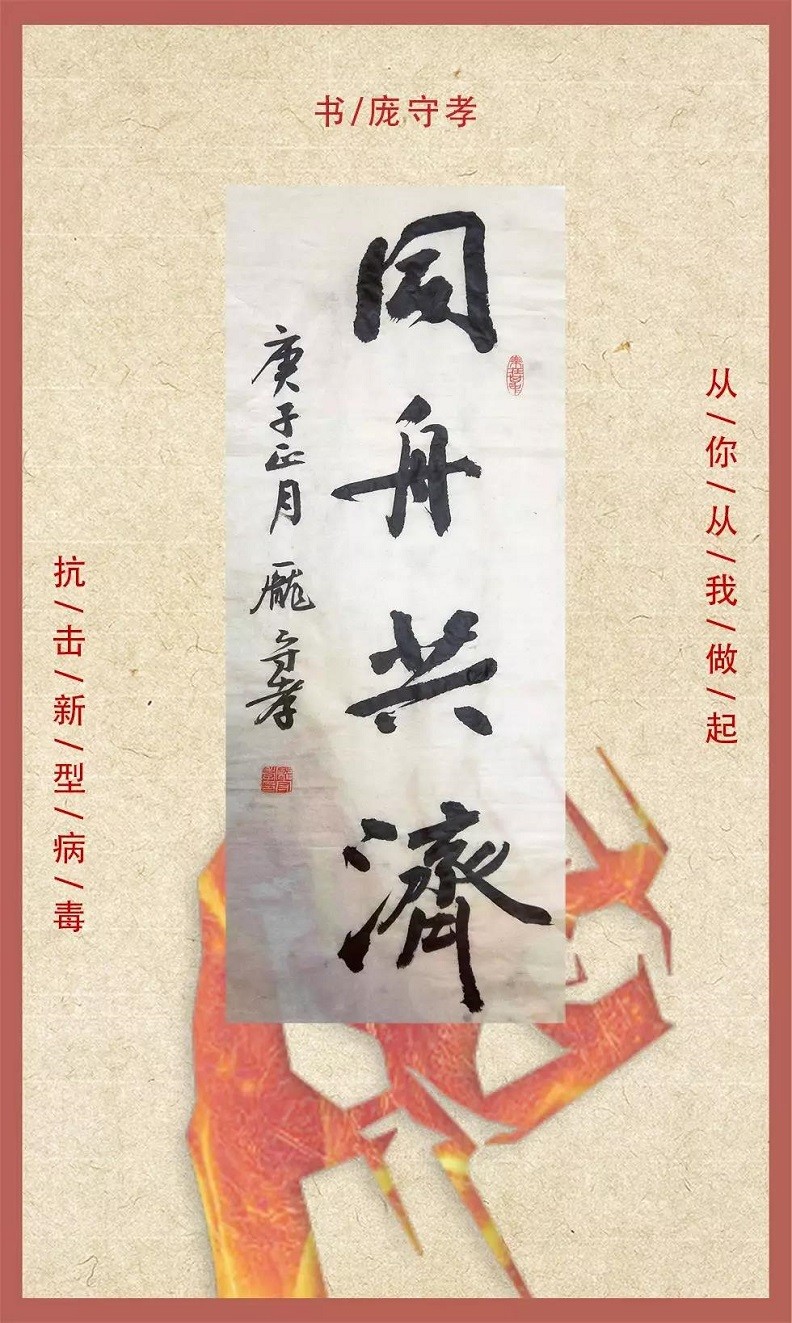 书/庞守孝
同舟共濟
庚子正月 龐守孝
从/你/从/我/做/起
抗/击/新/型/病/毒